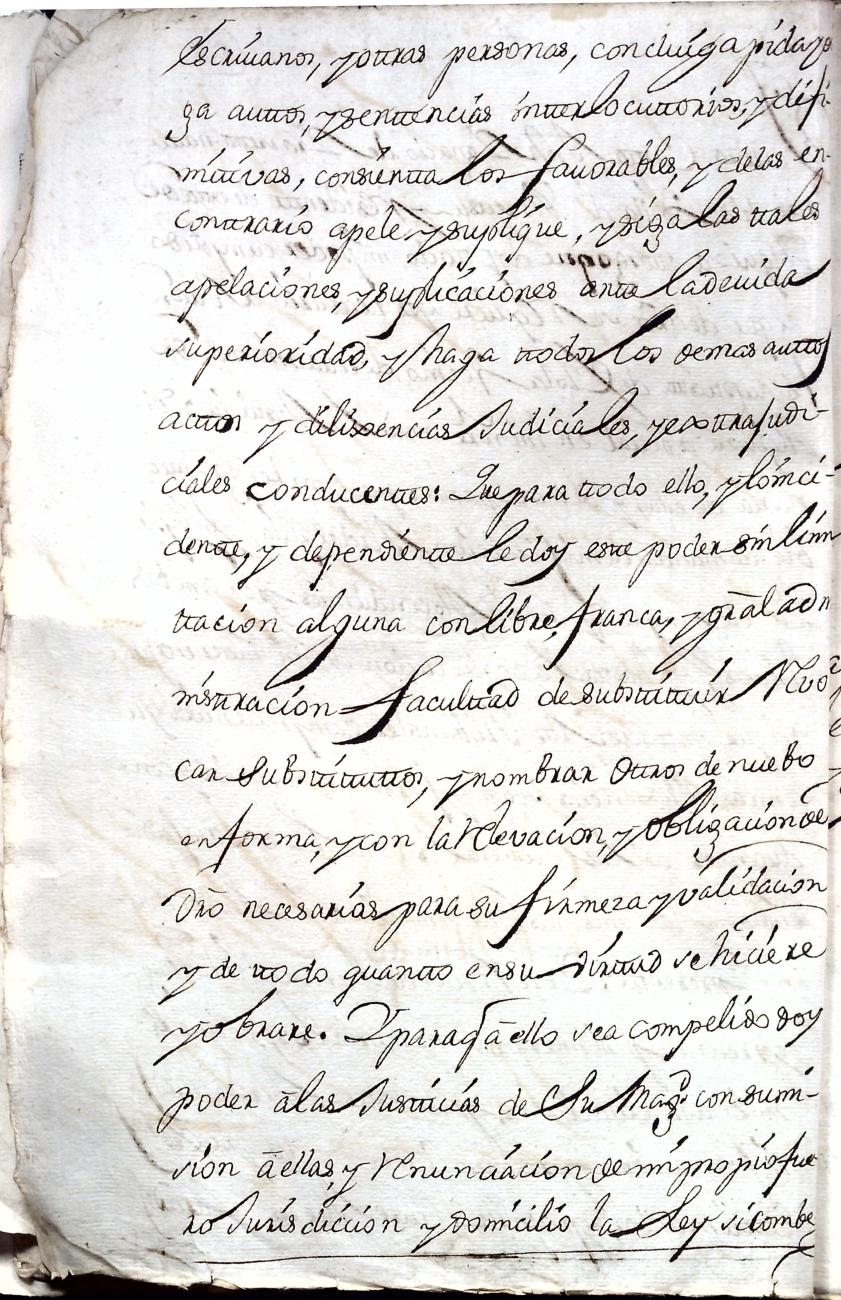 Escriuanos, y otras personas, concluiga pida y o
ga auttos, y sentencias interlocuttorios, y difi-
nitivas, consientta los favorables, y delas en
contrario apele y suplique, y siga las ttales
apelaciones, y suplicaciones antte la deuida
superioridad, y haga ttodos los demas auttos
acttos y dilixencias Judiciales, y exttrajudi-
ciales conducenttes: Que para ttodo ello, y lo inci-
dentte, y dependientte le doy este poder sin limi
ttacion alguna con libre, franca, y gral adm
nisttracion facultad de substituir Revo
car substituttos, y nombrar Ottros de nuebo
en forma, y con la Relevacion, y Obligacion de
Dro necesarias para su firmeza y validacion
y de ttodo quantto en su virtud se hiciere
y obrare. Y para q a ello sea compelido doy
poder a las Justicias de Su Magd. con sumi-
sion a ellas, y Renunciacion de mi propio fue
ro Jurisdiccion y domicilio la Ley sicombe